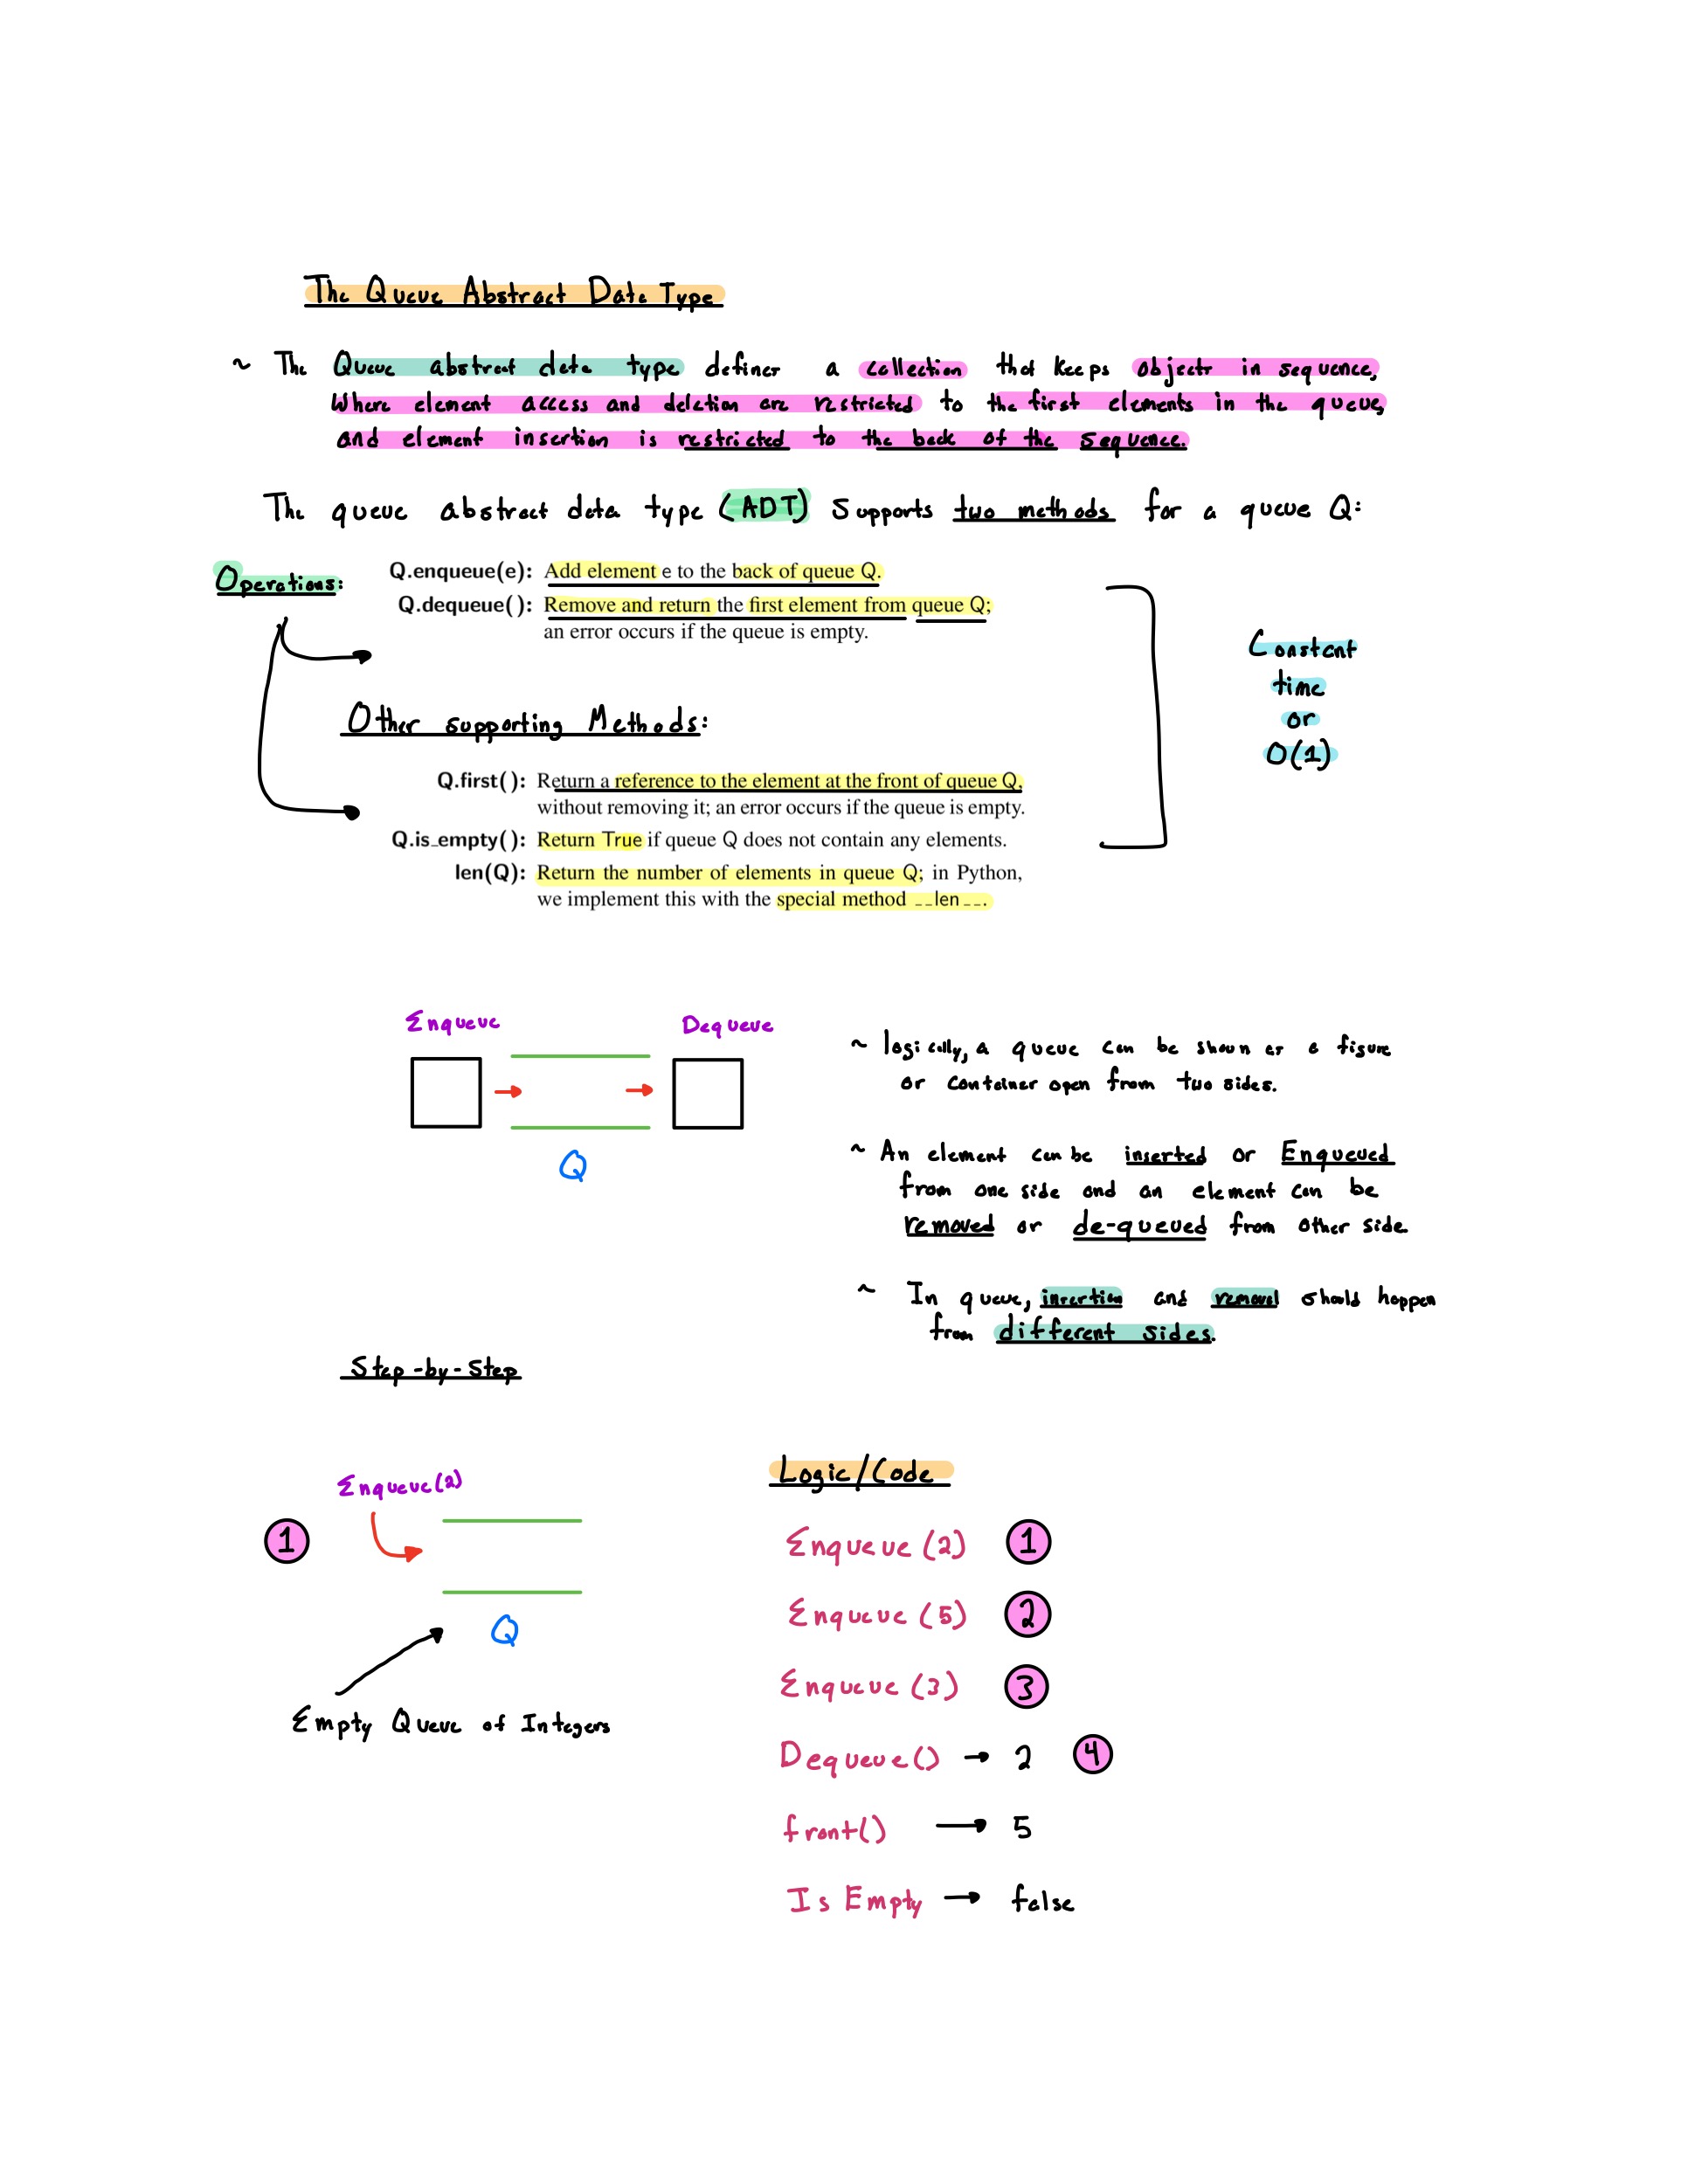 The Queue Abstract Data Type
~ The Queue abstract data type defines a collection that keeps objects in sequence,
where element access and deletion are restricted to the first elements in the queue,
and element insertion is restricted to the back of the sequence.
The queue abstract data type (ADT) supports two methods for a queue Q:
Operations:
Q.enqueue(e): Add element e to the back of queue Q.
Q.dequeue(): Remove and return the first element from queue Q;
an error occurs if the queue is empty.
Constant
time
or
O(1)
Other supporting Methods:
Q.first(): Return a reference to the element at the front of queue Q,
without removing it; an error occurs if the queue is empty.
Q.is_empty(): Return True if queue Q does not contain any elements.
len(Q): Return the number of elements in queue Q; in Python,
we implement this with the special method __len__.
Enqueue Dequeue
Q
~ logically, a queue can be shown as a figure
or container open from two sides.
~ An element can be inserted or Enqueued
from one side and an element can be
removed or de-queued from other side.
~ In queue, insertion and removal should happen
from different sides.
Step-by-Step
Enqueue(2)
1
Q
Empty Queue of Integers
Logic/Code
Enqueue (2) 1
Enqueue (5) 2
Enqueue (3) 3
Dequeue() → 2 4
front() → 5
Is Empty → false